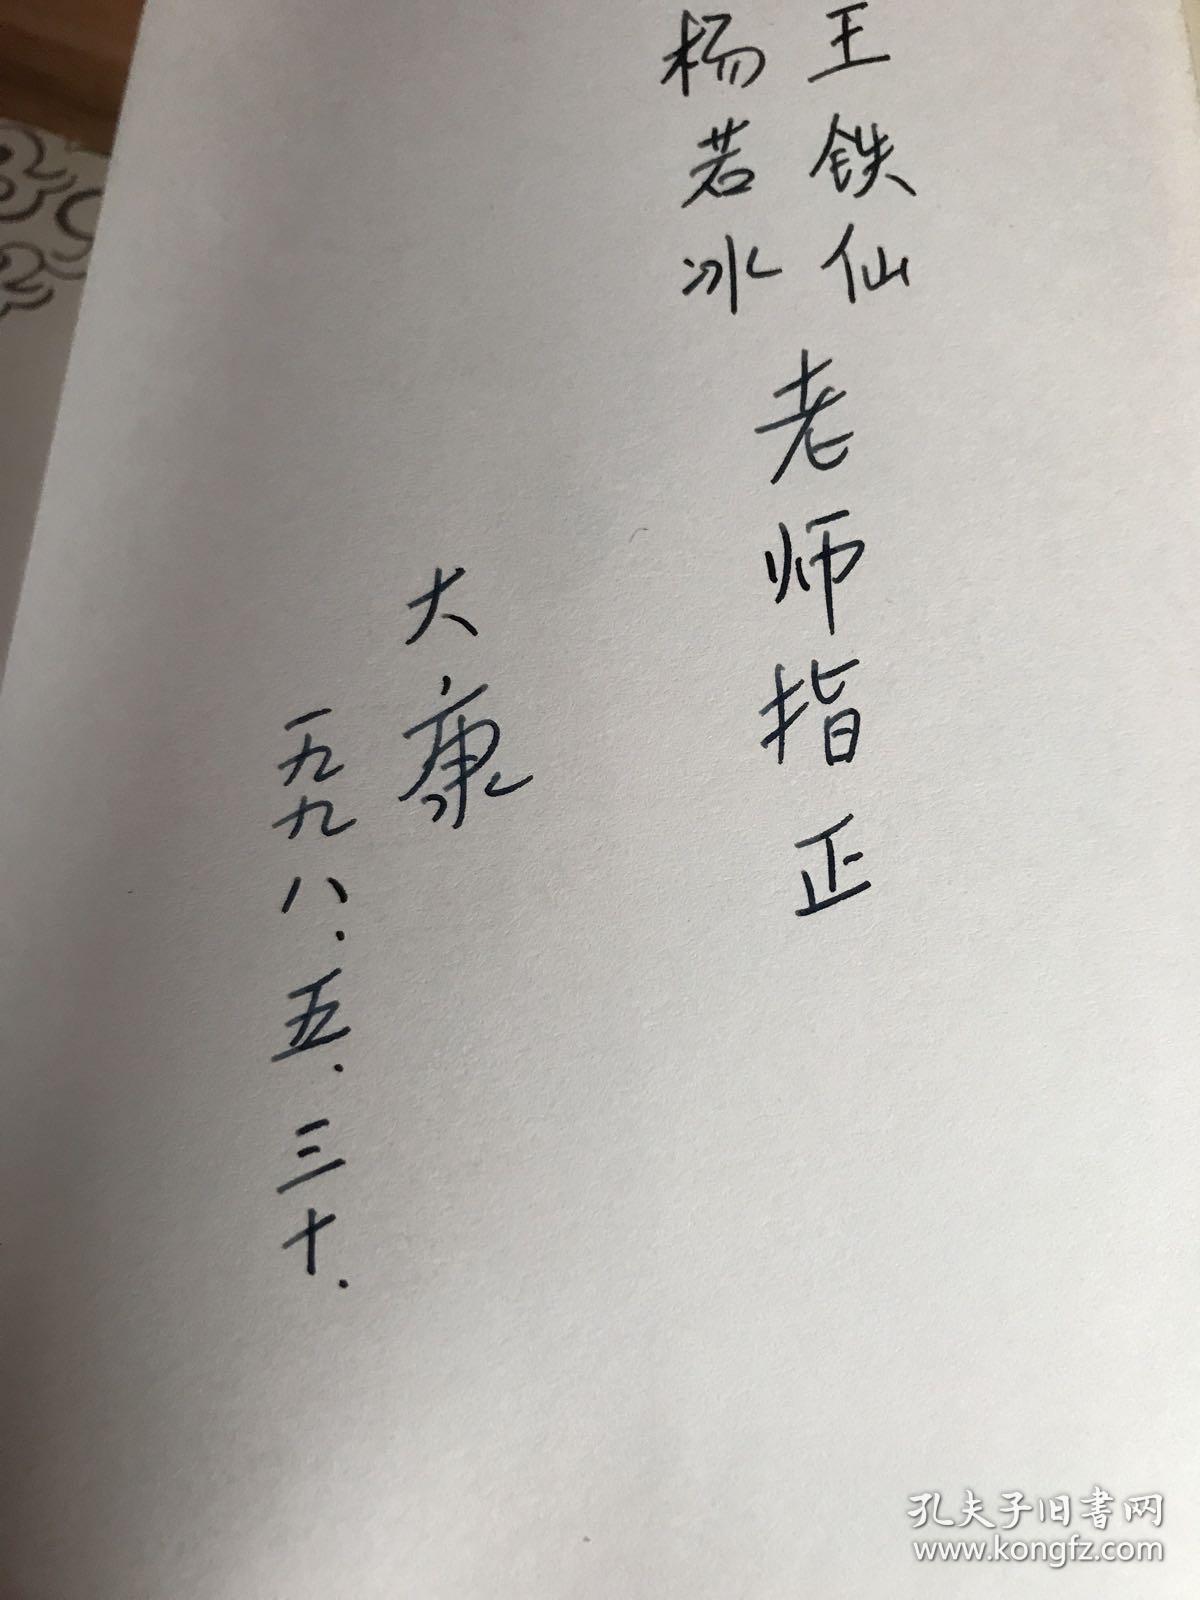 王铁仙
杨若冰
老师指正
大康
一九九八.五.三十.
孔夫子旧书网
www.kongfz.com